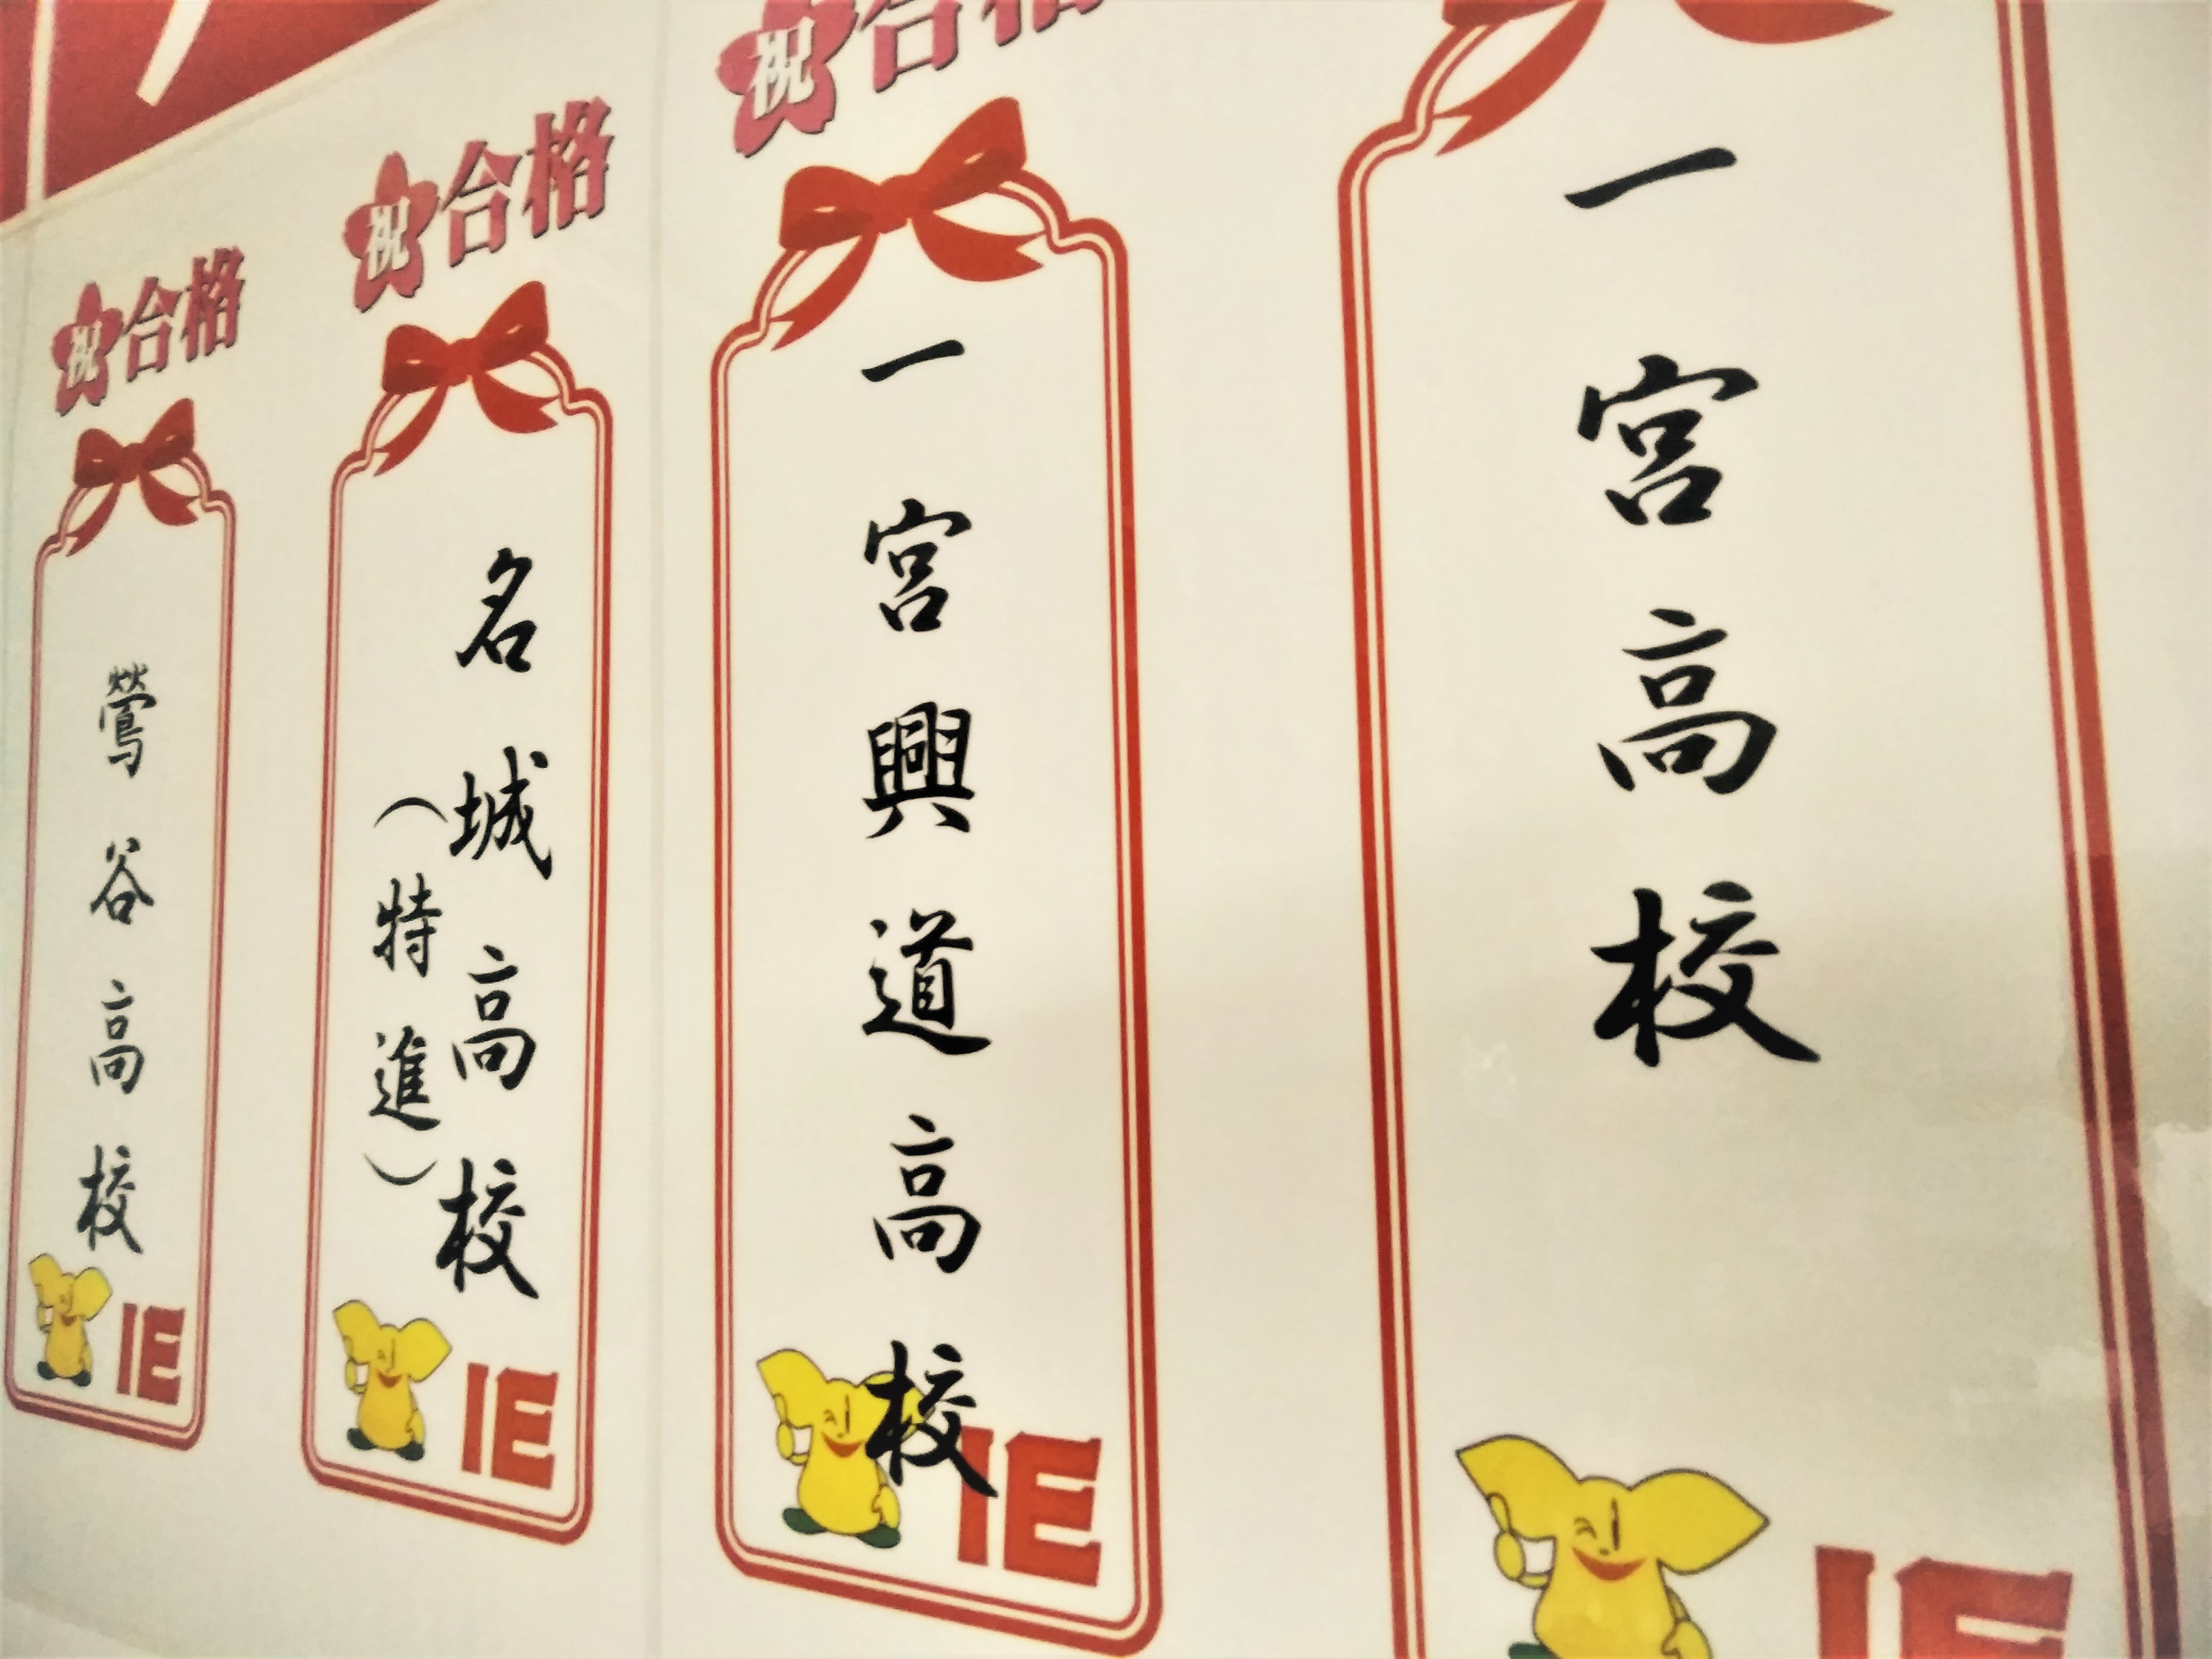 祝合格
一宮高校
IE
祝合格
一宮興道高校
IE
祝合格
名城高校
（特進）
IE
祝合格
鶯谷高校
IE